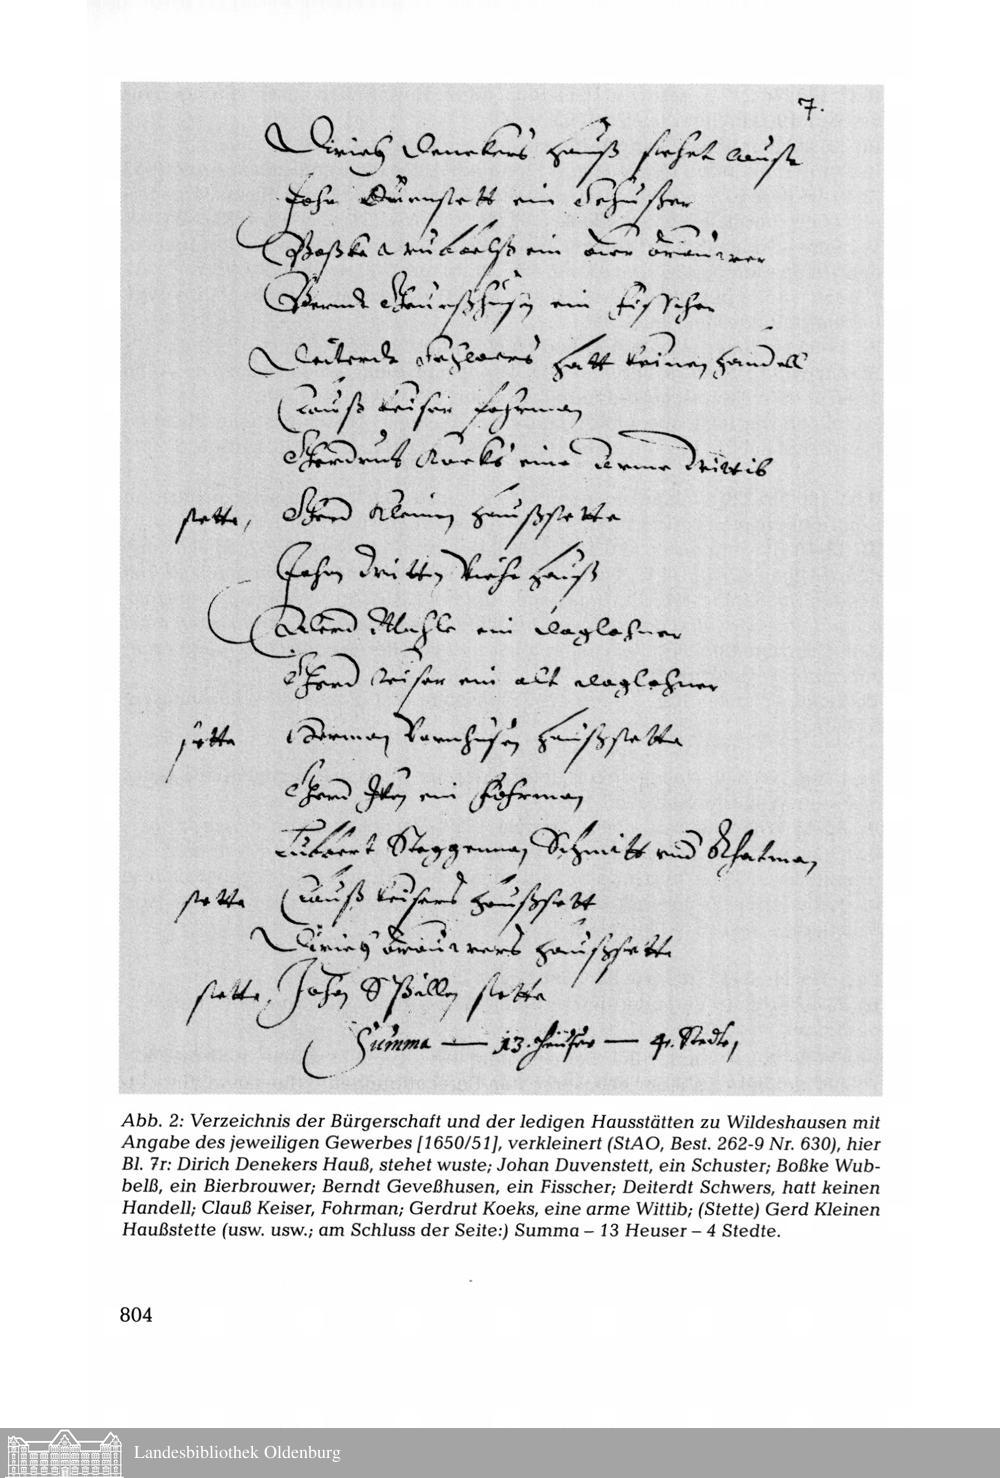 7.
Dirich Denekers Hauß stehet wuste
Johan Duvenstett ein Schuster
Boßke Wubbelß ein bier brouwer
Berndt Geveßhusen ein Fisscher
Deiterdt Schwers hatt keinen handell
Clauß Keiser fohrman
Gerdrut Koeks eine arme wittib
stette, Gerd Kleinen Haußstette
Johan hauß
Alerd ein daglohner
Gerd Keiser ein alt daglohner
stette Herman haußstette
Gerd ein fohrman
Lubbert Schmitt und
stette Clauß Keisers haußstett
Dirich brouwers haußstette
stette, Johan stette
Summa — 13. Heuser — 4. Stedte,
Abb. 2: Verzeichnis der Bürgerschaft und der ledigen Hausstätten zu Wildeshausen mit
Angabe des jeweiligen Gewerbes [1650/51], verkleinert (StAO, Best. 262-9 Nr. 630), hier
Bl. 7r: Dirich Denekers Hauß, stehet wuste; Johan Duvenstett, ein Schuster; Boßke Wub-
belß, ein Bierbrouwer; Berndt Geveßhusen, ein Fisscher; Deiterdt Schwers, hatt keinen
Handell; Clauß Keiser, Fohrman; Gerdrut Koeks, eine arme Wittib; (Stette) Gerd Kleinen
Haußstette (usw. usw.; am Schluss der Seite:) Summa – 13 Heuser – 4 Stedte.
804
Landesbibliothek Oldenburg